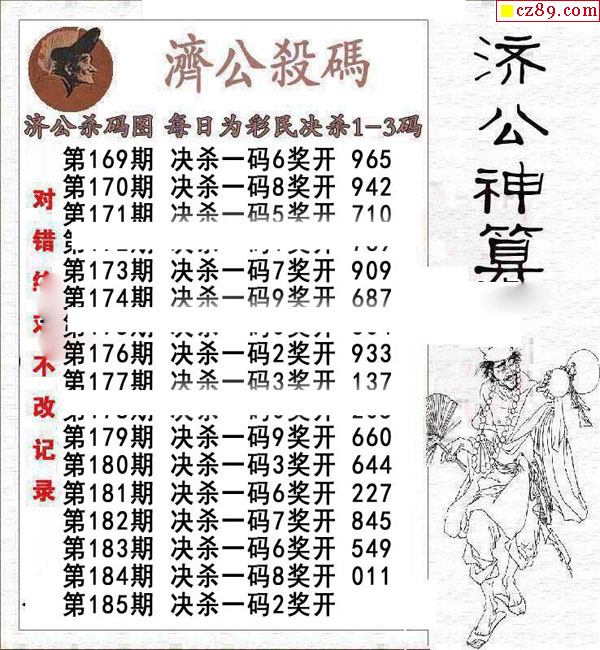 cz89.com
濟公殺碼
济公杀码图 每日为彩民决杀1-3码
第169期 决杀一码6奖开 965
第170期 决杀一码8奖开 942
第171期 决杀一码5奖开 710
第173期 决杀一码7奖开 909
第174期 决杀一码9奖开 687
第176期 决杀一码2奖开 933
第177期 决杀一码3奖开 137
第179期 决杀一码9奖开 660
第180期 决杀一码3奖开 644
第181期 决杀一码6奖开 227
第182期 决杀一码7奖开 845
第183期 决杀一码6奖开 549
第184期 决杀一码8奖开 011
第185期 决杀一码2奖开
对错 不改记录
济公神算